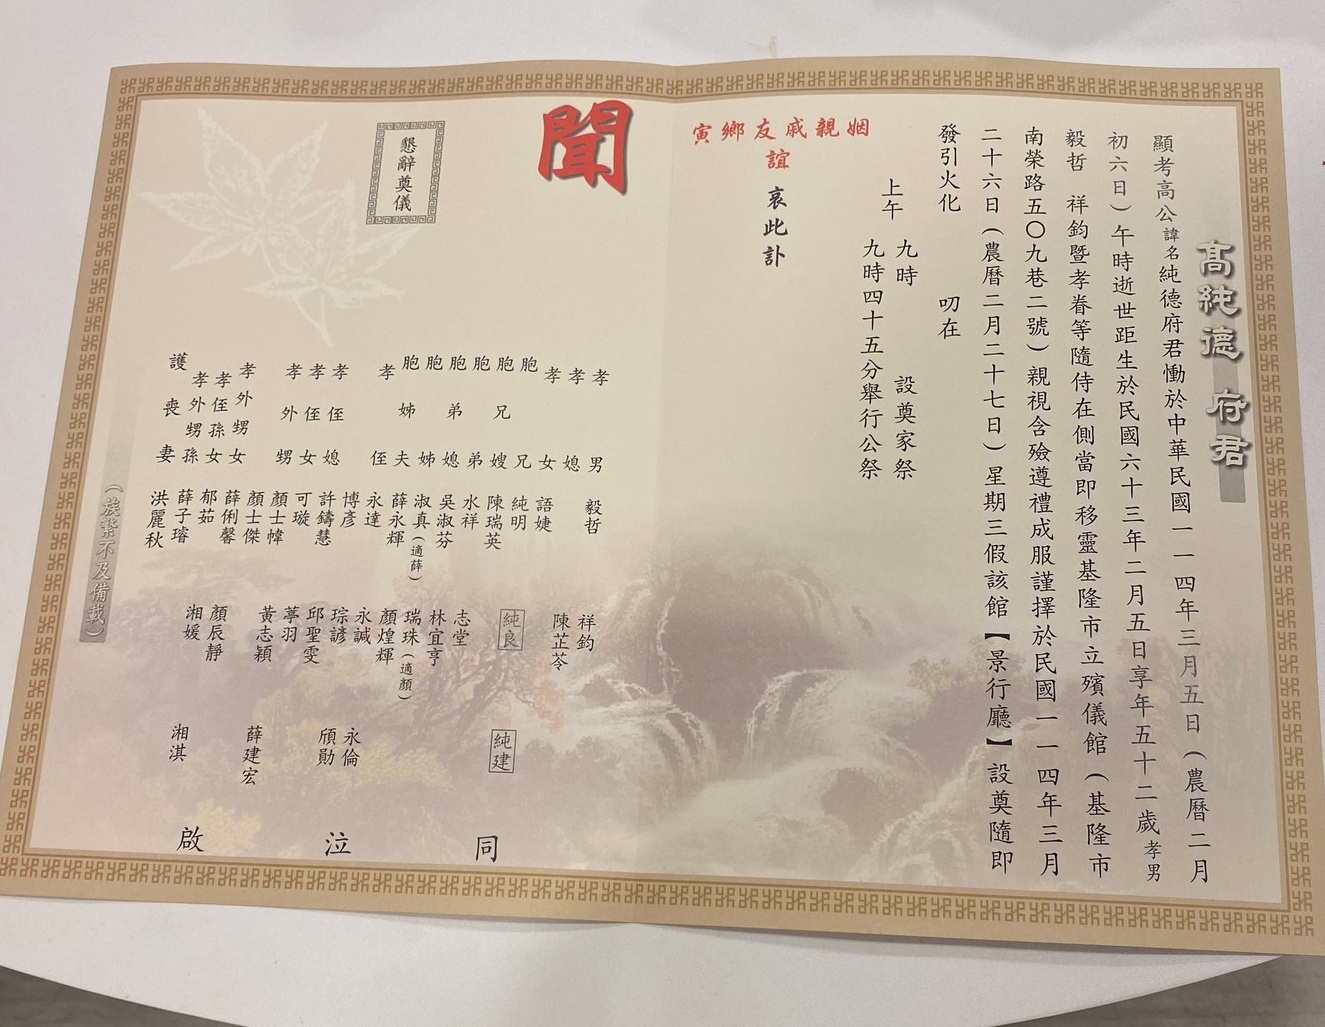 高純德 府君
顯考高公諱名純德府君慟於中華民國一一四年三月五日（農曆二月
初六日）午時逝世距生於民國六十三年二月五日享年五十二歲孝男
毅哲 祥鈞暨孝眷等隨侍在側當即移靈基隆市立殯儀館（基隆市
南榮路五〇九巷二號）親視含殮遵禮成服謹擇於民國一一四年三月
二十六日（農曆二月二十七日）星期三假該館【景行廳】設奠隨即
發引火化 叨在
上午 九時 設奠家祭
九時四十五分舉行公祭
姻親戚友鄉寅
誼 哀此訃
聞
懇辭奠儀
孝男 毅哲 祥鈞
孝媳 陳芷苓
孝女 語婕
胞兄 純明 純良 純建
胞兄嫂 陳瑞英
胞弟 水祥 志堂
胞弟媳 吳淑芬 林宜亭
胞姊 淑真（適薛） 瑞珠（適顏）
胞姊夫 薛永輝 顏煌輝
孝侄 永達 永誠 永倫
博彥 琮諺 頎勛
孝侄媳 許鑄慧 邱聖雯
孝侄女 可璇 葶羽
孝外甥 顏士幃 黃志穎
顏士傑 薛建宏
孝外甥女 薛俐馨
孝侄孫女 郁茹 顏辰靜
孝外甥孫 薛子璿 湘媛 湘淇
護喪妻 洪麗秋
同 泣 啟
（族繁不及備載）